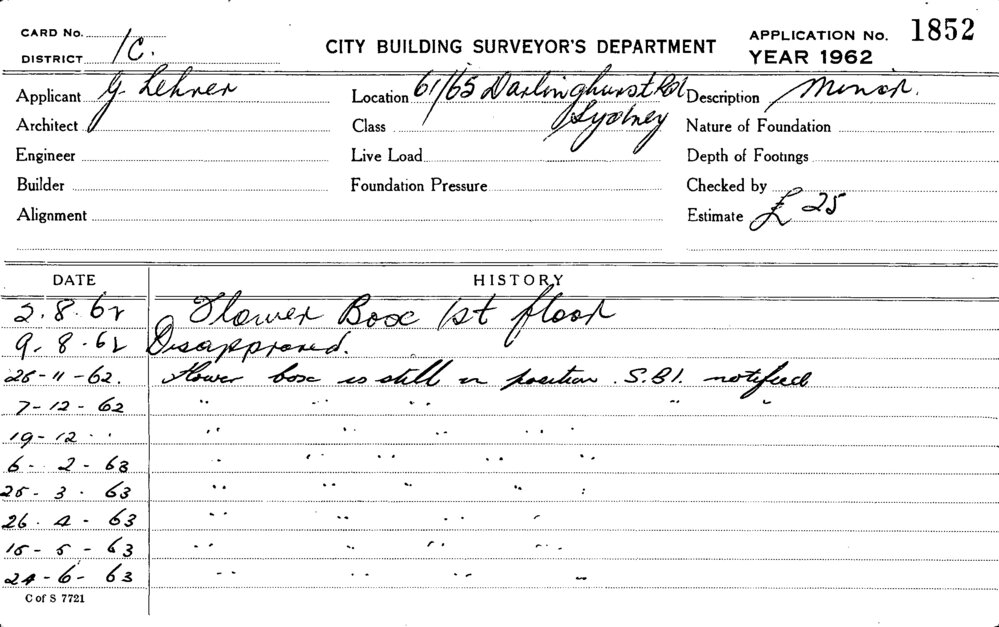 CARD No.
DISTRICT 1C.
CITY BUILDING SURVEYOR'S DEPARTMENT
APPLICATION No. 1852
YEAR 1962
Applicant G Lehrer Location 61/65 Darlinghurst Rd Description Minor.
Architect Class Sydney Nature of Foundation
Engineer Live Load Depth of Footings
Builder Foundation Pressure Checked by
Alignment Estimate £ 25
DATE HISTORY
2.8.62 Flower Box 1st floor
9.8.62 Disapproved.
26-11-62. Flower box is still in position. S.B.I. notified
7-12-62 " " " " "
19-12 " " " " " "
6-2-63 " " " " "
25-3-63 " " " " "
26.4-63 " " " "
15-5-63 " " " "
24-6-63 " " " "
C of S 7721